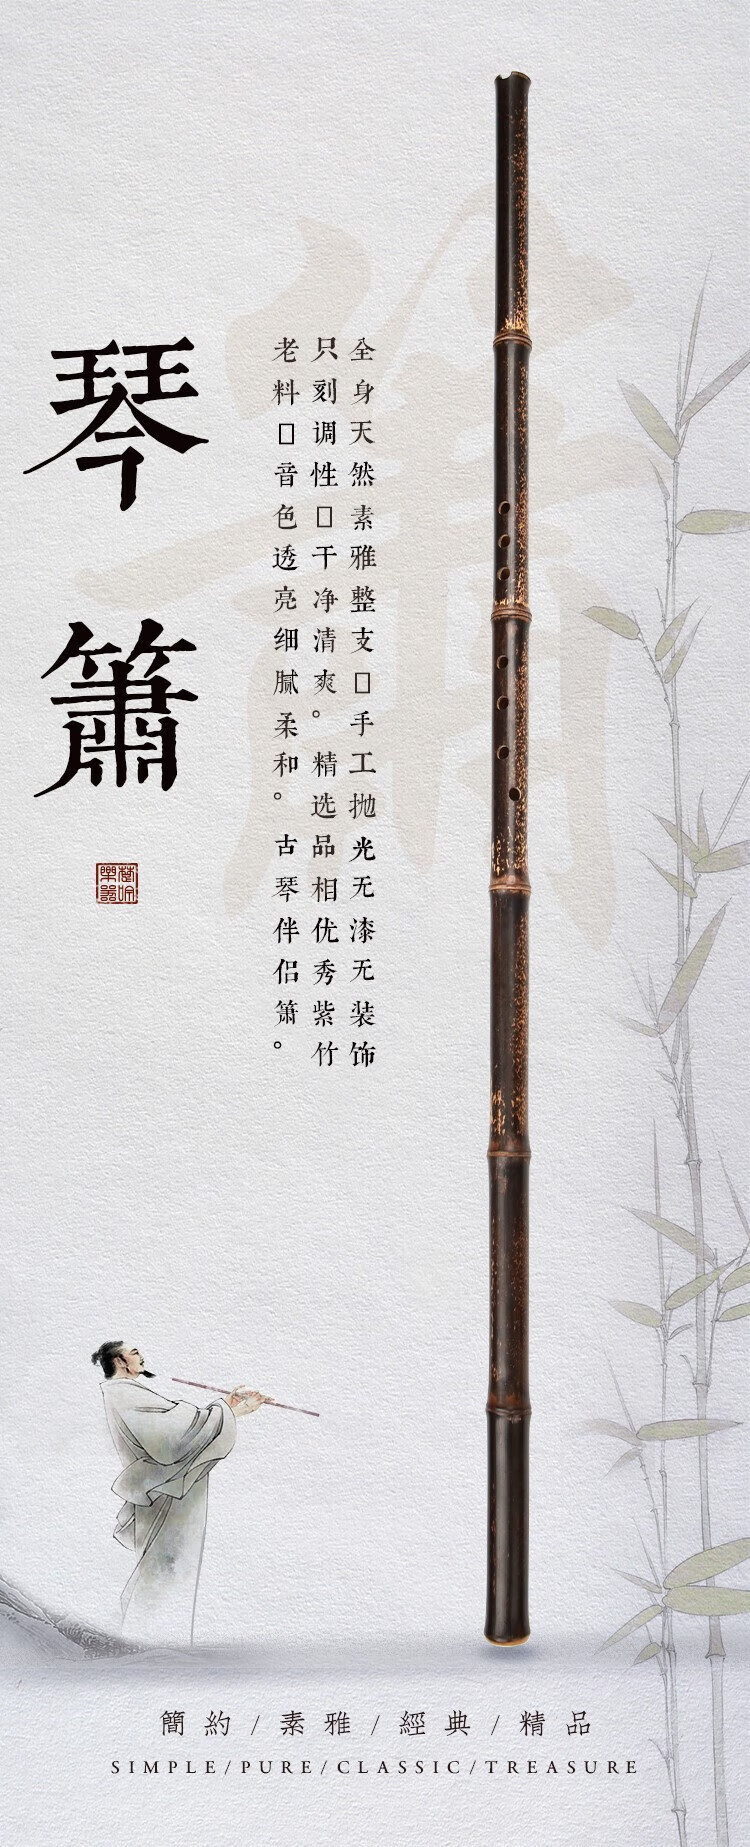 琴簫
全身天然素雅整支▯手工抛光无漆无装饰
只刻调性▯干净清爽。精选品相优秀紫竹
老料▯音色透亮细腻柔和。古琴伴侣箫。
簡約/素雅/經典/精品
SIMPLE/PURE/CLASSIC/TREASURE